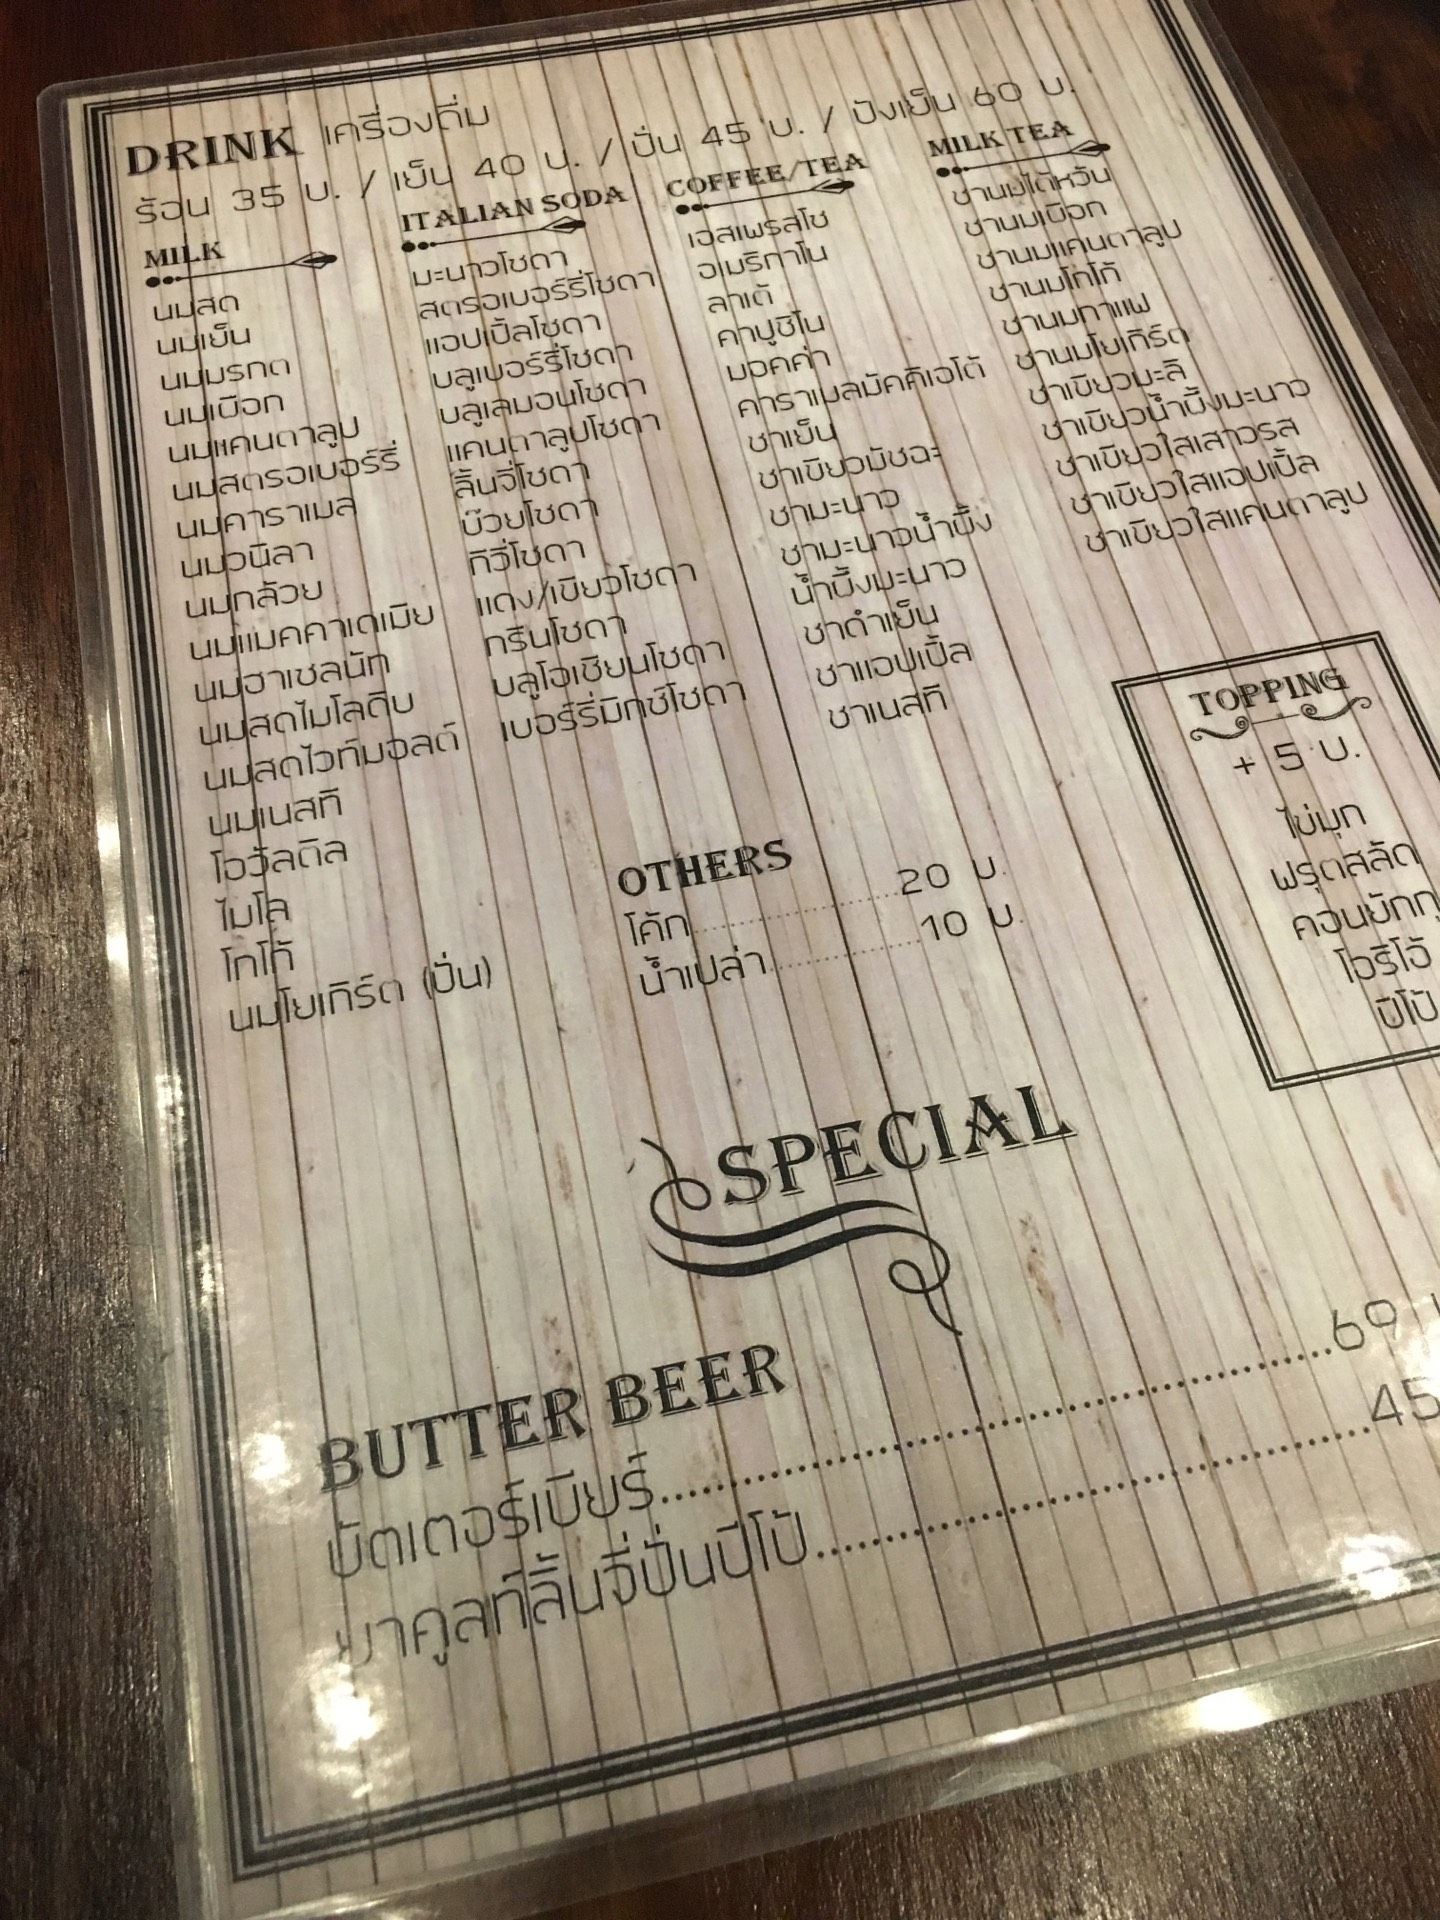 DRINK เครื่องดื่ม
ร้อน 35 บ. / เย็น 40 บ. / ปั่น 45 บ. / ปังเย็น 60 บ.
MILK
นมสด
นมเย็น
นมมรกต
นมเผือก
นมแคนตาลูป
นมสตรอเบอร์รี่
นมคาราเมล
นมวนิลา
นมกล้วย
นมแมคคาเดเมีย
นมฮาเซลนัท
นมสดไมโลดิบ
นมสดไวท์มอลต์
นมเนสที
โอวัลติล
ไมโล
โกโก้
นมโยเกิร์ต (ปั่น)
ITALIAN SODA
มะนาวโซดา
สตรอเบอร์รี่โซดา
แอปเปิ้ลโซดา
บลูเบอร์รี่โซดา
บลูเลมอนโซดา
แคนตาลูปโซดา
ลิ้นจี่โซดา
บ๊วยโซดา
กีวี่โซดา
แดง/เขียวโซดา
กรีนโซดา
บลูโอเชียนโซดา
เบอร์รี่มิกซ์โซดา
COFFEE/TEA
เอสเพรสโซ
อเมริกาโน
ลาเต้
คาปูชิโน
มอคค่า
คาราเมลมัคคิเอโต้
ชาเย็น
ชาเขียวมัชฉะ
ชามะนาว
ชามะนาวน้ำผึ้ง
น้ำผึ้งมะนาว
ชาดำเย็น
ชาแอปเปิ้ล
ชาเนสที
MILK TEA
ชานมไต้หวัน
ชานมเผือก
ชานมแคนตาลูป
ชานมโกโก้
ชานมกาแฟ
ชานมโยเกิร์ต
ชาเขียวมะลิ
ชาเขียวน้ำผึ้งมะนาว
ชาเขียวใสเสาวรส
ชาเขียวใสแอปเปิ้ล
ชาเขียวใสแคนตาลูป
TOPPING
+ 5 บ.
ไข่มุก
ฟรุตสลัด
คอนยัคกุ
โอรีโอ้
ปีโป้
OTHERS
โค้ก..........20 บ.
น้ำเปล่า..........10 บ.
SPECIAL
BUTTER BEER
บัตเตอร์เบียร์..........69
ยาคูลท์ลิ้นจี่ปั่นปีโป้..........45